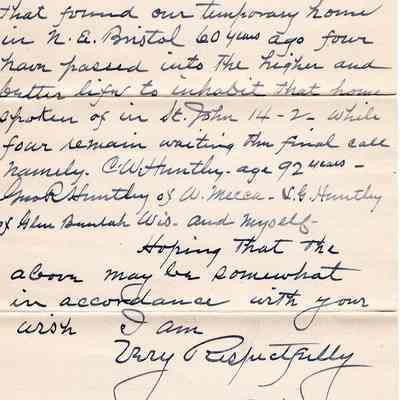 that found our temporary home
in N. E. Bristol 60 years ago four
have passed into the higher and
better life to inhabit that home
spoken of in St. John 14-2- while
four remain waiting the final call
namely. C.W. Huntley. age 92 years -
Geo R Huntley of W. Mecca - V. G. Huntley
of Glen Beulah Wis. and myself-
Hoping that the
above may be somewhat
in accordance with your
wish I am
Very Respectfully